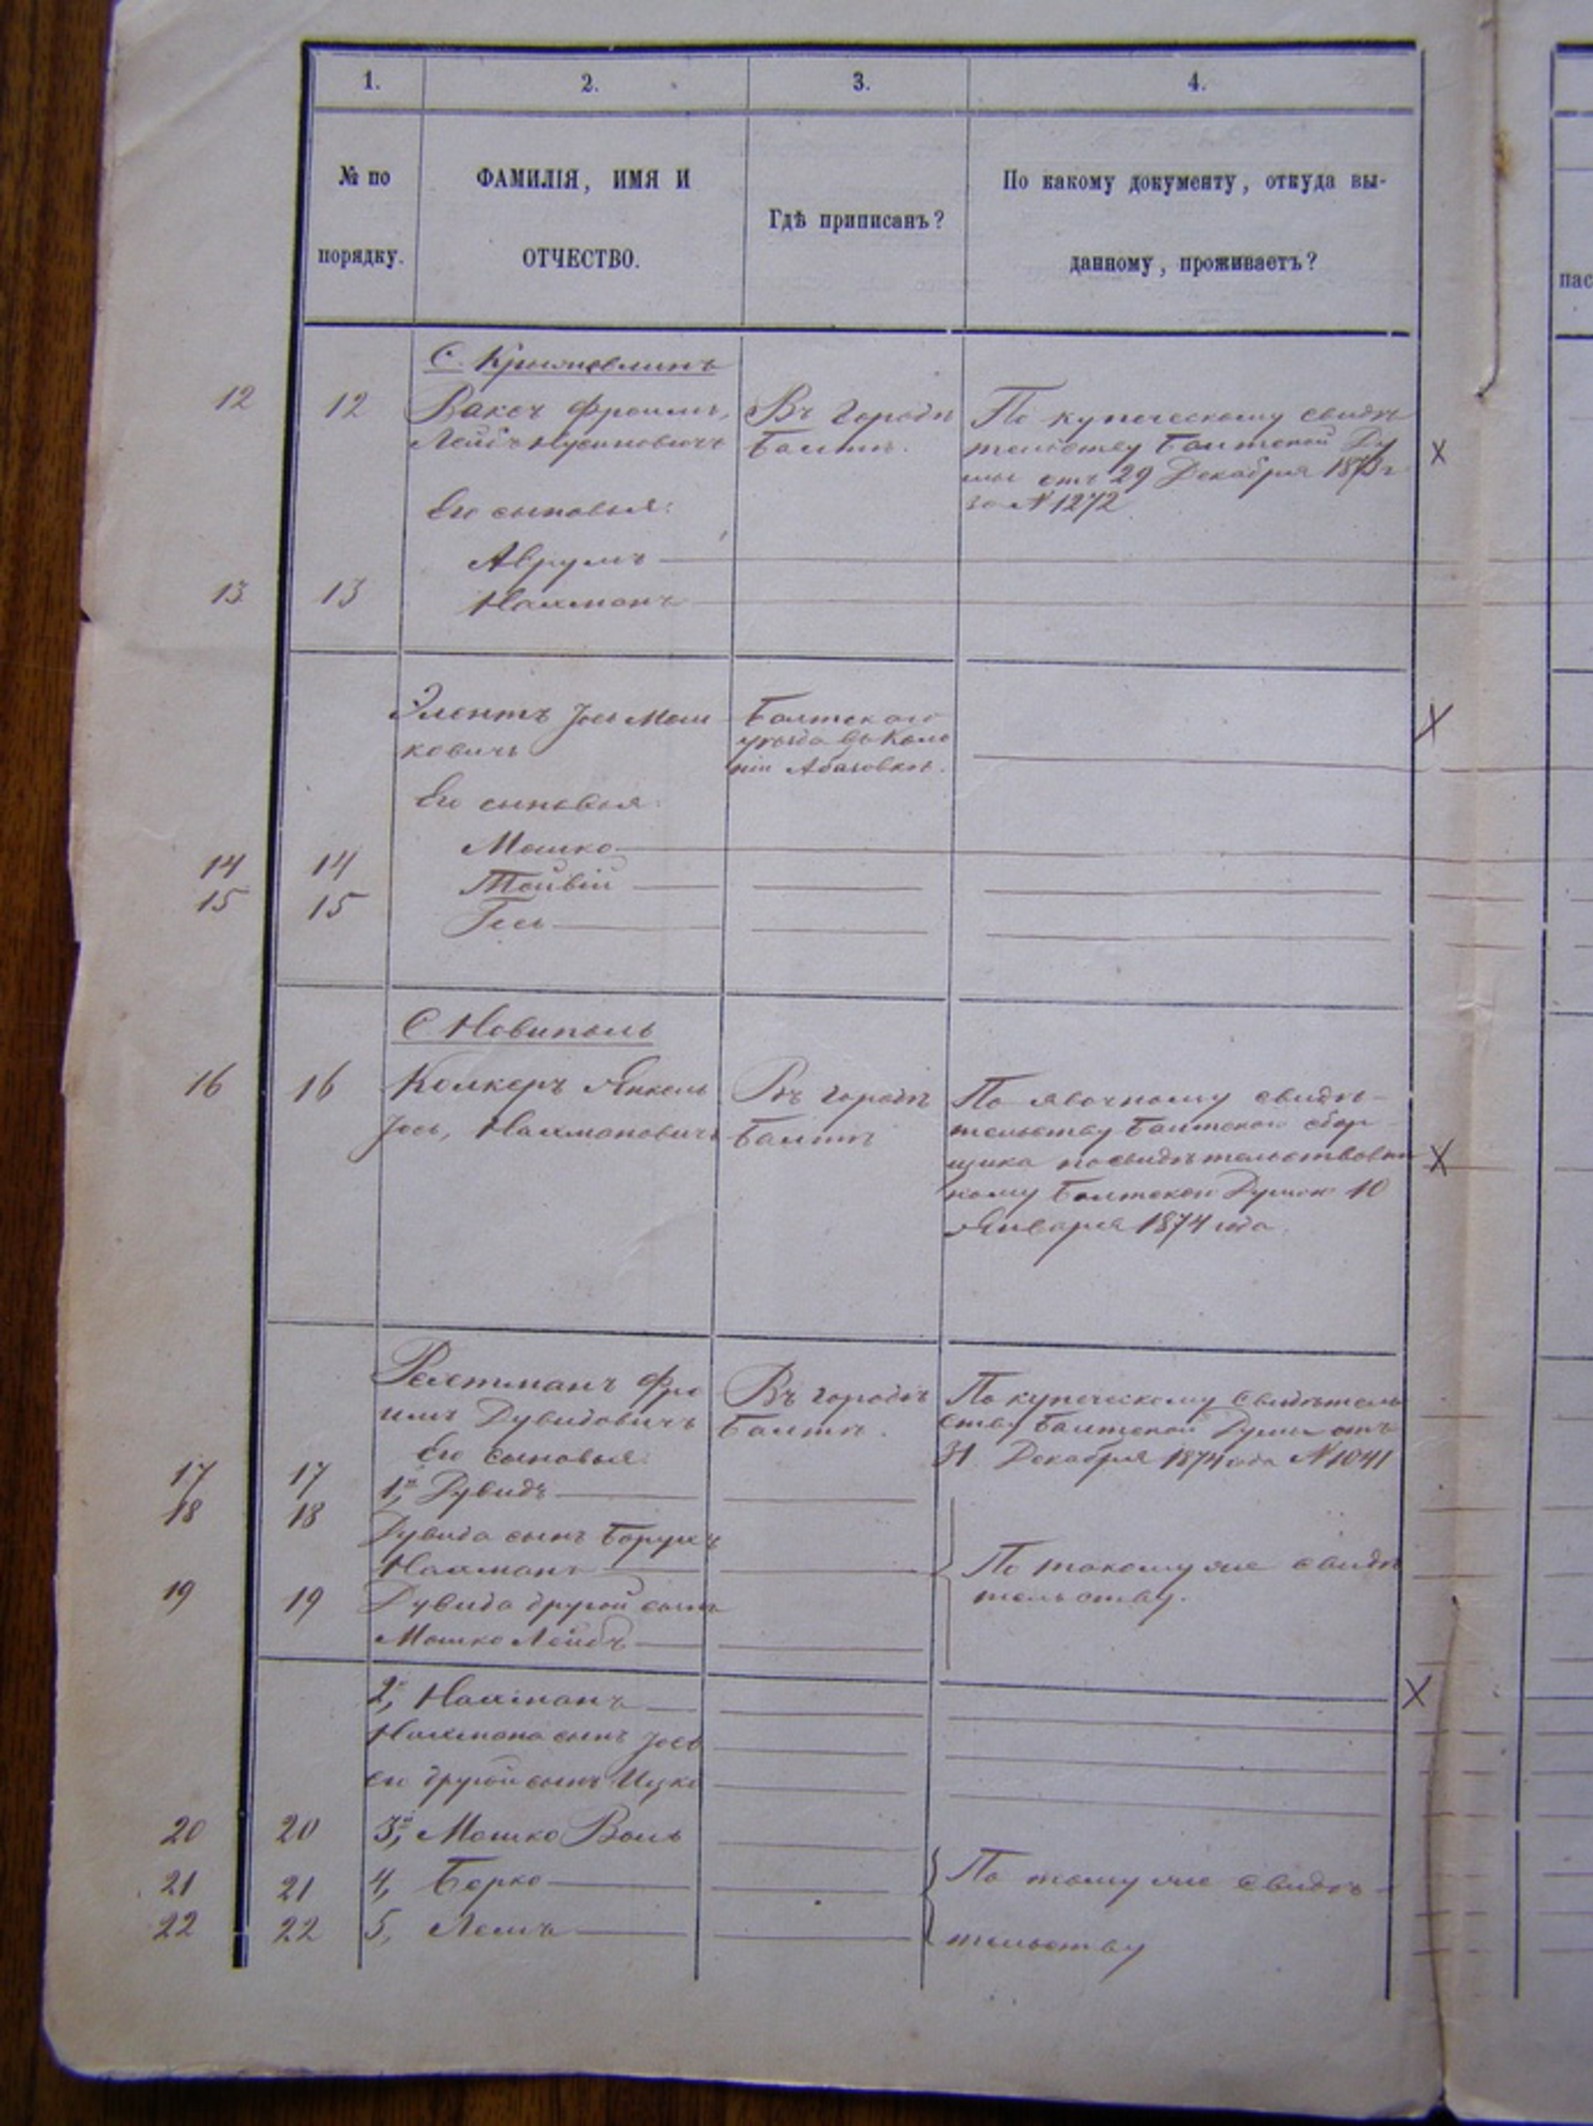 1. 2. 3. 4.
№ по
порядку.
ФАМИЛІЯ, ИМЯ И
ОТЧЕСТВО.
Гдѣ приписанъ?
По какому документу, откуда вы-
данному, проживаетъ?
пас
12 12
Фроимъ,
Въ городѣ
Балтѣ.
По купеческому свидѣ
тельству Балтской Ду
мы отъ 29 Декабря 1873 г
за № 1272
Его сыновья:
Аврумъ
13 13 Нахманъ
Іось Мош
ковичъ
Балтскаго
уѣзда въ Коло
ніи Абазовкѣ.
Его сыновья:
Мошко
14 14 Тойвій
15 15
С. Новиполь
16 16 Колкеръ Янкель
Іось, Нахмановичъ
Въ городѣ
Балтѣ
По явочному свидѣ-
тельству Балтскаго сбор-
щика
Балтской Думою 10
Января 1874 года.
Рехтманъ Фро
имъ Дувидовичъ
Въ городѣ
Балтѣ.
По купеческому свидѣтель
ству Балтской Думы отъ
31 Декабря 1874 года № 1041
Его сыновья:
17 17 1й, Дувидъ
18 18 Дувида сынъ Борухъ
Нахманъ
19 19 Дувида другой сынъ
Мошко Лейбъ
По такому же свидѣ
тельству.
2й, Нахманъ
Нахмана сынъ Іось
его другой сынъ Ицко
20 20 3й, Мошко Воль
21 21 4, Берко
22 22 5,
По тому же свидѣ-
тельству